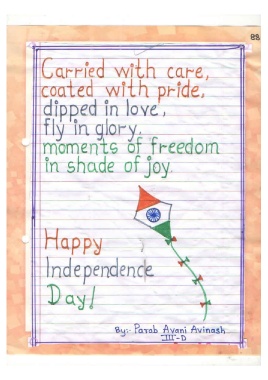 88
Carried with care,
coated with pride,
dipped in love,
fly in glory,
moments of freedom
in shade of joy.
Happy
Independence
Day!
By:- Parab Avani Avinash
III-D